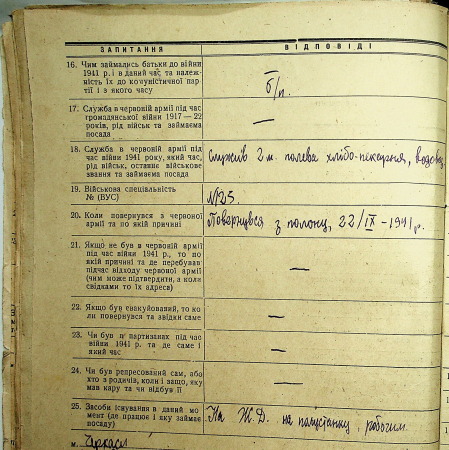 ЗАПИТАННЯ
ВІДПОВІДІ
16. Чим займались батьки до війни
1941 р. і в даний час та належ-
ність їх до комуністичної пар-
тії і з якого часу
б/п.
17. Служба в червоній армії під час
громадянської війни 1917—22
років, рід військ та займаєма
посада
—
18. Служба в червоній армії під
час війни 1941 року, який час,
рід військ, останнє військове
звання та займаєма посада
Служив 2 м. полева хлібо-пекарня,
19. Військова спеціальність
№ (ВУС)
№125.
20. Коли повернувся з червоної
армії та по якій причині
Повернувся з полону, 22/IX-1941 р.
21. Якщо не був в червоній армії
під час війни 1941 р., то по
якій причині та де перебував
підчас відходу червоної армії
(чим може підтвердити, а коли
свідками то їх адреса)
—
22. Якщо був евакуйований, то ко-
ли повернувся та звідки саме
—
23. Чи був в партизанах під час
війни 1941 р. та де саме і
який час
—
24. Чи був репресований сам, або
хто з родичів, коли і защо, яку
мав кару та чи відбув її
—
25. Засоби існування в даний мо-
мент (де працює і яку займає
посаду)
На Ж.Д. на полустанку, робочим
м. Черкаси